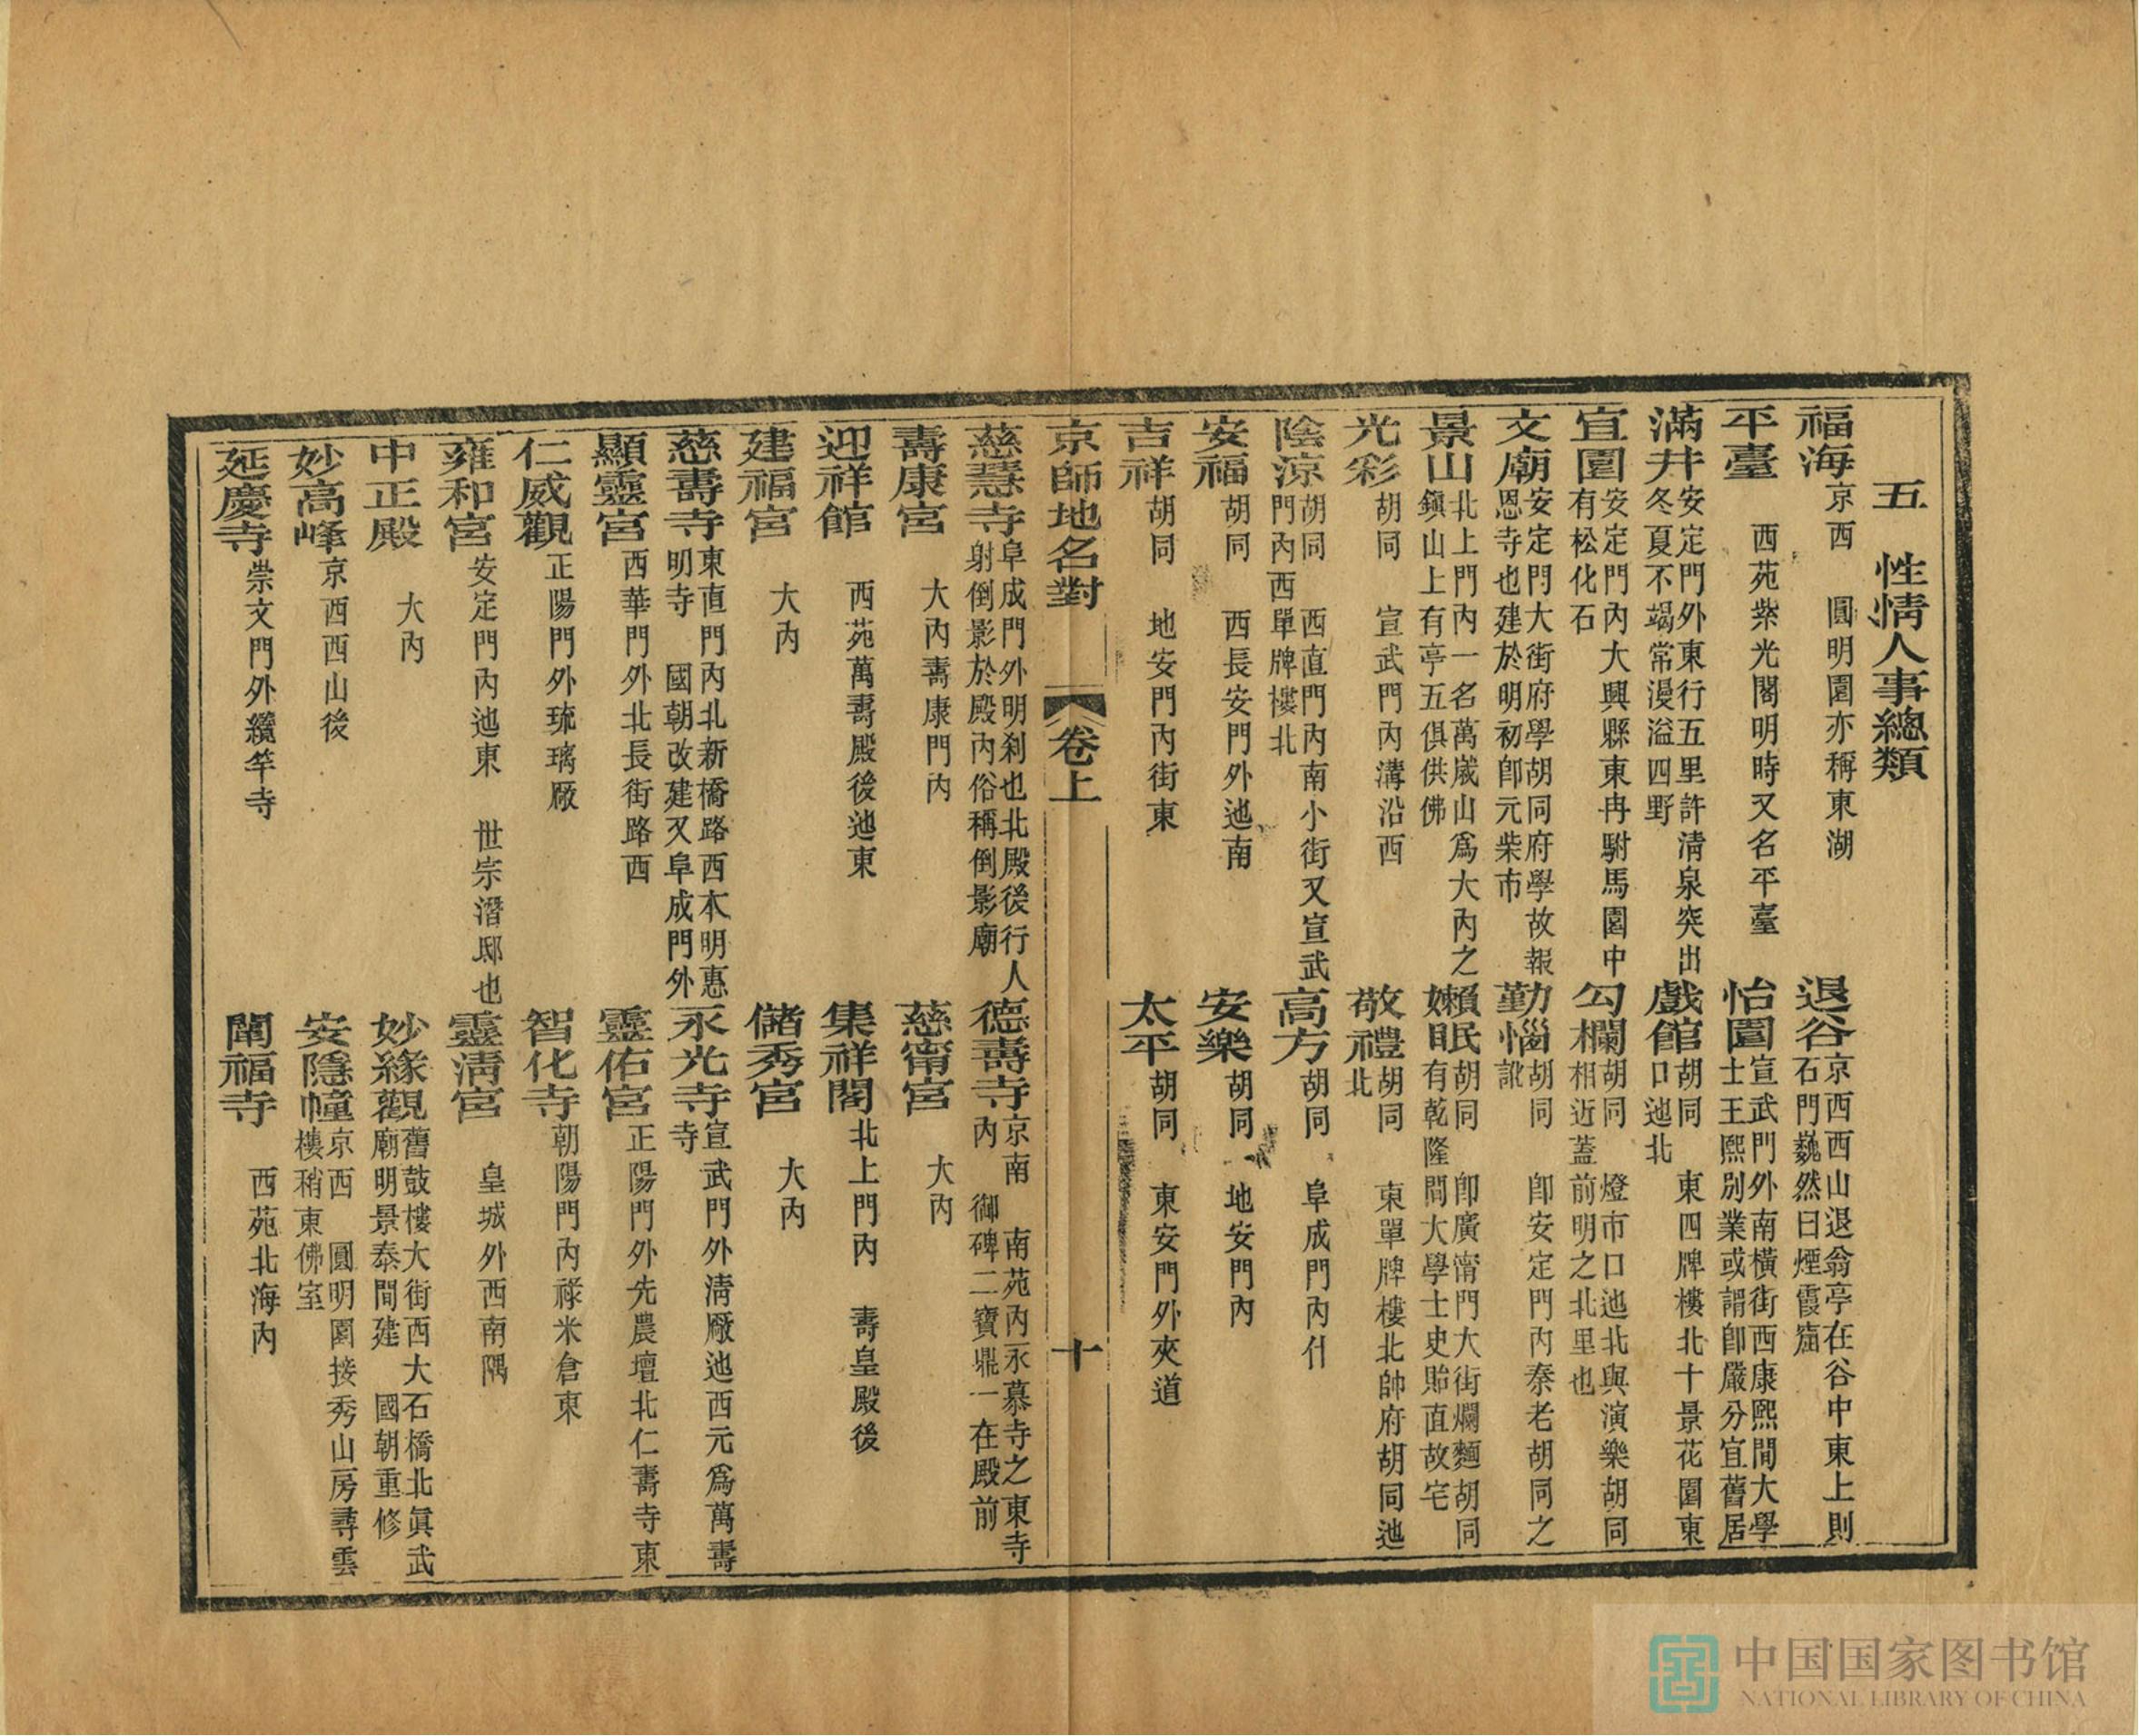 五　性情人事總類
福海京西　圓明園亦稱東湖
退谷京西西山退翁亭在谷中東上則石門巍然曰煙霞窟
平臺西苑紫光閣明時又名平臺
怡園宣武門外南橫街西康熙間大學士王熙別業或謂卽嚴分宜舊居
滿井安定門外東行五里許清泉突出冬夏不竭常漫溢四野
戲館胡同　東四牌樓北十景花園東口迆北
宜園安定門內大興縣東冉駙馬園中有松化石
勾欄胡同　燈市口迆北與演樂胡同相近蓋前明之北里也
文廟安定門大街府學胡同府學故報恩寺也建於明初卽元柴市
勤惱胡同　卽安定門內秦老胡同之訛
景山北上門內一名萬歲山爲大內之鎭山上有亭五俱供佛
嬾眠胡同　卽廣甯門大街爛麵胡同有乾隆間大學士史貽直故宅
光彩胡同　宣武門內溝沿西
敬禮胡同　東單牌樓北帥府胡同迆北
陰涼胡同　西直門內南小街又宣武門內西單牌樓北
高方胡同　阜成門內什
安福胡同　西長安門外迆南
安樂胡同　地安門內
吉祥胡同　地安門內街東
太平胡同　東安門外夾道
京師地名對　卷上　十
慈慧寺阜成門外明刹也北殿後行人射倒影於殿內俗稱倒影廟
德壽寺京南　南苑內永慕寺之東寺內　御碑二寶鼎一在殿前
壽康宮大內壽康門內
慈甯宮大內
迎祥館西苑萬壽殿後迆東
集祥閣北上門內　壽皇殿後
建福宮大內
儲秀宮大內
慈壽寺東直門內北新橋路西本明惠明寺　國朝改建又阜成門外
永光寺宣武門外清厰迆西元爲萬壽寺
顯靈宮西華門外北長街路西
靈佑宮正陽門外先農壇北仁壽寺東
仁威觀正陽門外琉璃厰
智化寺朝陽門內祿米倉東
雍和宮安定門內迆東　世宗潛邸也
靈清宮皇城外西南隅
中正殿大內
妙緣觀舊鼓樓大街西大石橋北眞武廟明景泰間建　國朝重修
妙高峰京西西山後
安隱幢京西　圓明園接秀山房尋雲樓稍東佛室
延慶寺崇文門外纜竿寺
闡福寺西苑北海內
中国国家图书馆
NATIONAL LIBRARY OF CHINA